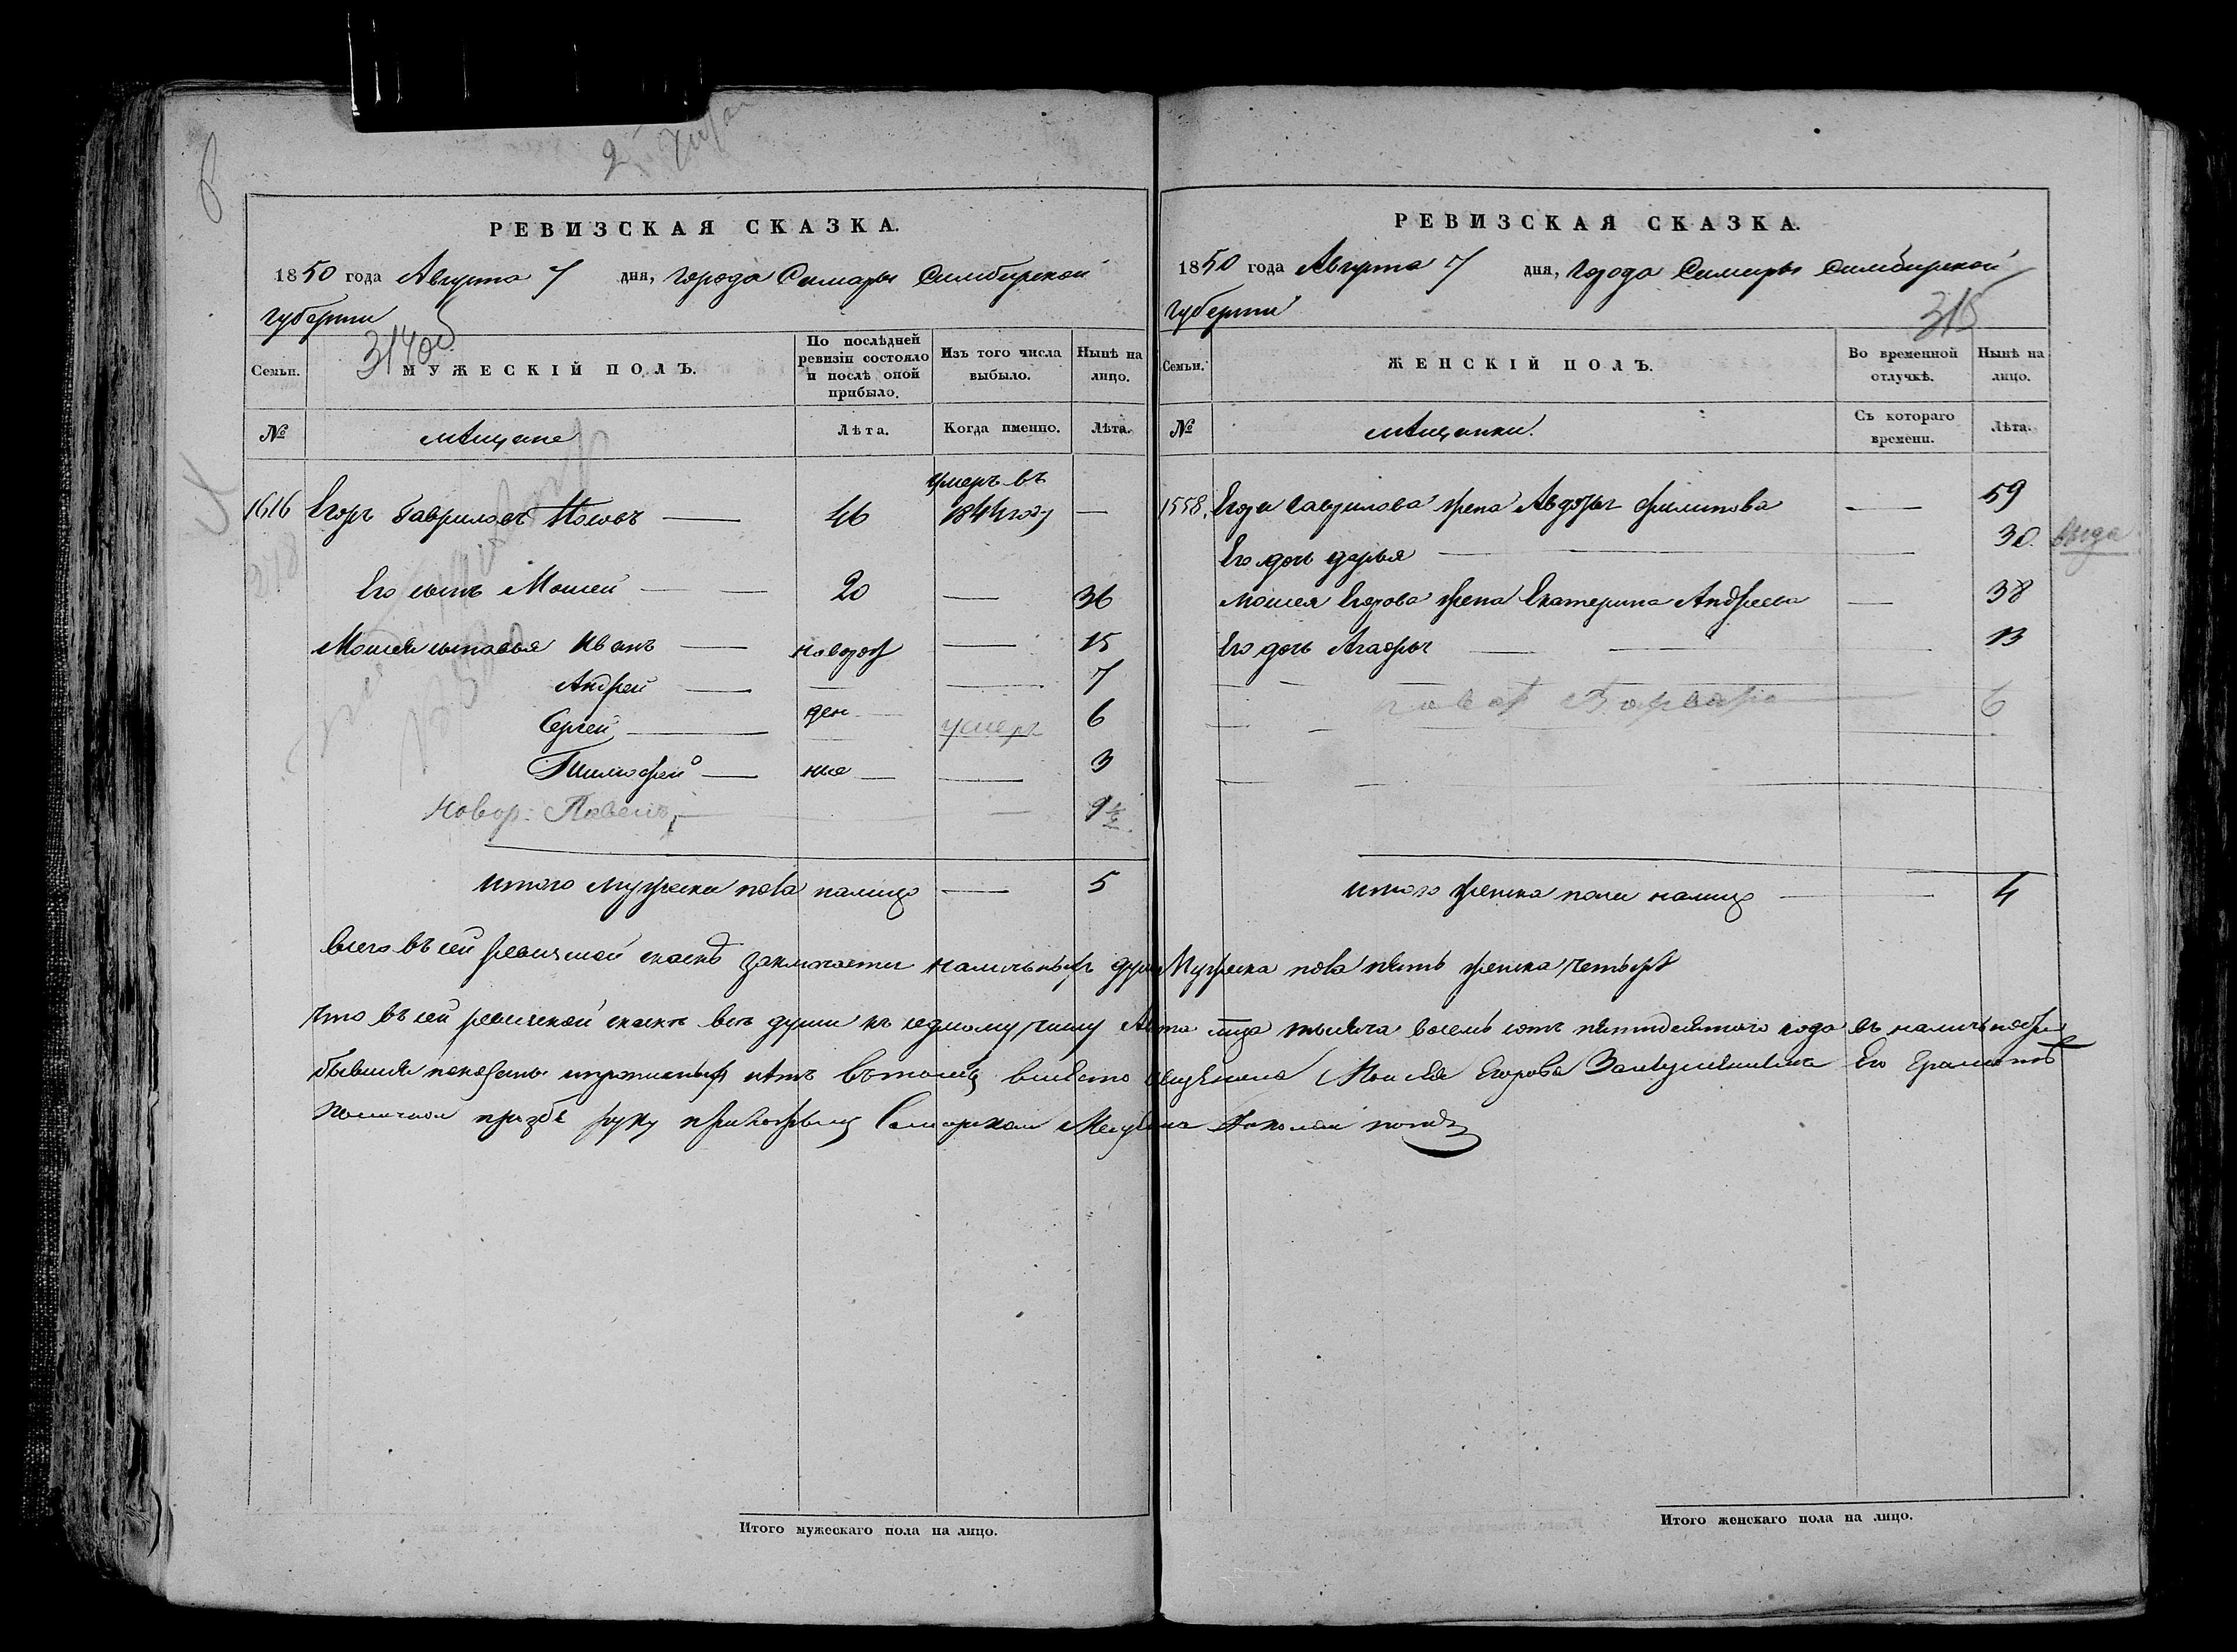 РЕВИЗСКАЯ СКАЗКА.
1850 года Августа 7 дня, города Самары Симбирской
губернии
314об
Семьи.
МУЖЕСКІЙ ПОЛЪ.
По послѣдней ревизіи состояло и послѣ оной прибыло.
Изъ того числа выбыло.
Нынѣ на лицо.
№
мещане
Лѣта.
Когда именно.
Лѣта.
умеръ въ
1616 Егоръ Гавриловъ 46 1844 году —
Его сынъ Моисей — 20 — 36
Моисея сыновья Иванъ — новорож — 15
Андрей — 7
Сергей — ден умеръ 6
Тимофей — ные — 3
Новор: Павелъ — 9 1/2
итого мужеска пола налицо — 5
Итого мужескаго пола на лицо.
РЕВИЗСКАЯ СКАЗКА.
1850 года Августа 7 дня, города Самары Симбирской
губернии
315
Семьи.
ЖЕНСКІЙ ПОЛЪ.
Во временной отлучкѣ.
Нынѣ на лицо.
№
мещанки.
Съ котораго времени.
Лѣта.
1558. Егора Гаврилова жена Авдотья Филипова — 59
Его дочь дарья — 30
Моисея Егорова жена Екатерина Андреева — 38
Его дочь Агафья — 13
Варвара 6
итого женска пола налицо — 4
всего въ сей ревизской скаске заключается наличныхъ душъ Мужеска пола пять женска четыре
что въ сей ревизской скаске все души къ седмому числу Авгста мца тысяча восемь сотъ пятидесятого года въ
показаны и прописныхъ нетъ въ томъ вместо мещанина Моисея Егорова За Его
прозбе руку приложилъ Самарской Мещанинъ
Итого женскаго пола на лицо.